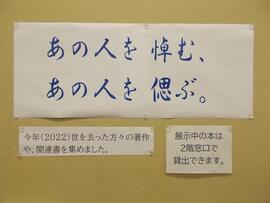 あの人を 悼む、
あの人を 偲ぶ。
今年(2022)世を去った方々の著作
や、関連書を集めました。
展示中の本は
2階窓口で
貸出できます。